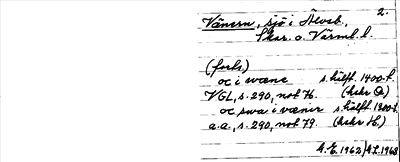 2.
Vänern, sjö i Älvsb.,
Skar. o. Värml. l.
(forts.)
oc i wæne s. hälft. 1400-t.
VGL, s. 290, not 76. (hskr O)
oc swa i vænir s. hälft. 1300-t.
a.a., s. 290, not 79. (hskr H)
A.E. 1962/A.L. 1963